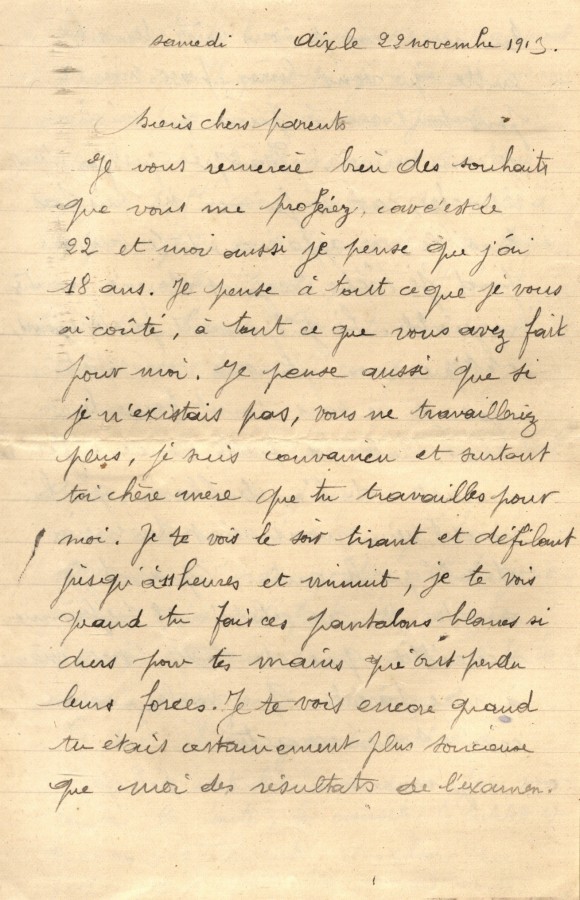 samedi Aix le 22 novembre 1913.
Biens chers parents
Je vous remercie bien des souhaits
que vous me proférez, car c'est le
22 et moi aussi je pense que j'ai
18 ans. Je pense à tout ce que je vous
ai coûté, à tout ce que vous avez fait
pour moi. Je pense aussi que si
je n'existais pas, vous ne travailleriez
plus, je suis convaincu et surtout
toi chère mère que tu travailles pour
moi. Je te vois le soir tirant et défilant
jusqu'à 11 heures et minuit, je te vois
quand tu fais ces pantalons blancs si
durs pour tes mains qui ont perdu
leurs forces. Je te vois encore quand
tu étais certainement plus soucieuse
que moi des résultats de l'examen.